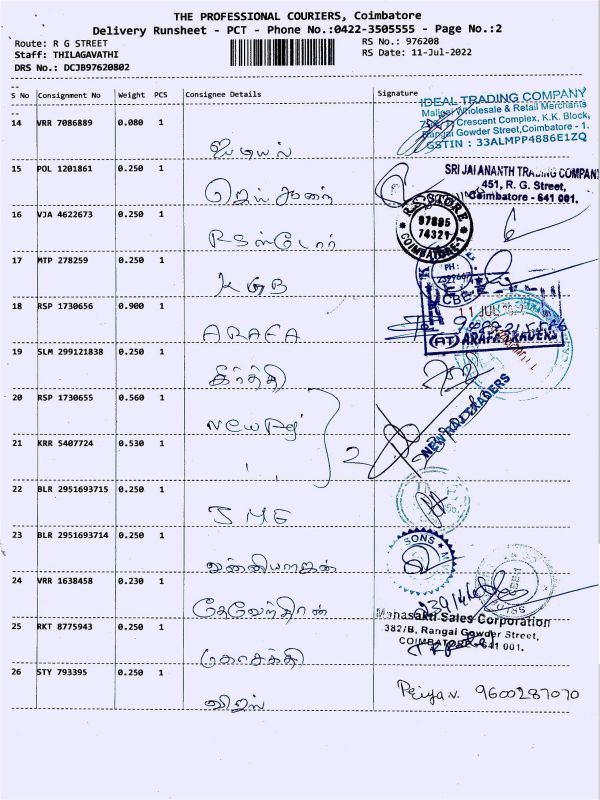 THE PROFESSIONAL COURIERS, Coimbatore
Delivery Runsheet - PCT - Phone No.:0422-3505555 - Page No.:2
Route: R G STREET
RS No.: 976208
Staff: THILAGAVATHI
RS Date: 11-Jul-2022
DRS No.: DCJB97620802
S No Consignment No Weight PCS Consignee Details Signature
IDEAL TRADING COMPANY
Maligai Wholesale & Retail Merchants
Crescent Complex, K.K. Block,
Rangai Gowder Street,Coimbatore - 1.
GSTIN : 33ALMPP4886E1ZQ
14 VRR 7086889 0.080 1
ஐடியல்
15 POL 1201861 0.250 1
SRI JAI ANANTH TRADING COMPANY
451, R. G. Street,
Coimbatore - 641 001.
16 VJA 4622673 0.250 1
RS STORE
97895
74321
COIMBATORE-1
RS ஸ்டோர்
17 MTP 278259 0.250 1
KGB
PH :
CBE-
18 RSP 1730656 0.900 1
11 JUL
ARAFA
(AT) ARAFA TRADERS
19 SLM 299121838 0.250 1
கீர்த்தி
20 RSP 1730655 0.560 1
New Raj
NEW RAJ TRADERS
21 KRR 5407724 0.530 1
2
22 BLR 2951693715 0.250 1
SME
23 BLR 2951693714 0.250 1
SONS
வன்னியராஜன்
24 VRR 1638458 0.230 1
தேவேந்திரன்
Mahasakti Sales Corporation
382/B, Rangai Gowder Street,
COIMBATORE - 641 001.
25 RKT 8775943 0.250 1
மகாசக்தி
26 STY 793395 0.250 1
விஜய்
Priya.v. 9600287070